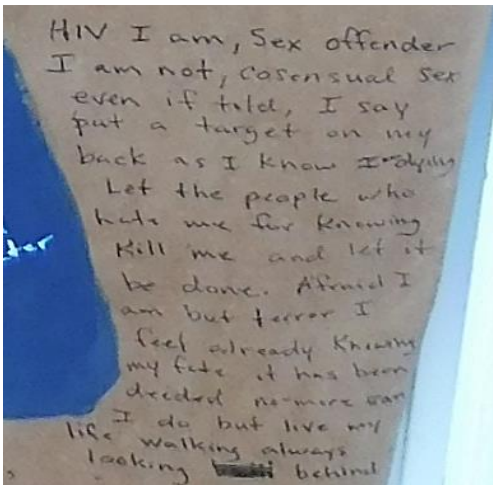 HIV I am, Sex offender
I am not, cosensual sex
even if told, I say
put a target on my
back as I know I dying
Let the people who
hate me for knowing
Kill me and let it
be done. Afraid I
am but terror I
feel already knowing
my fate it has been
decided no-more can
I do but live my
life walking always
looking behind